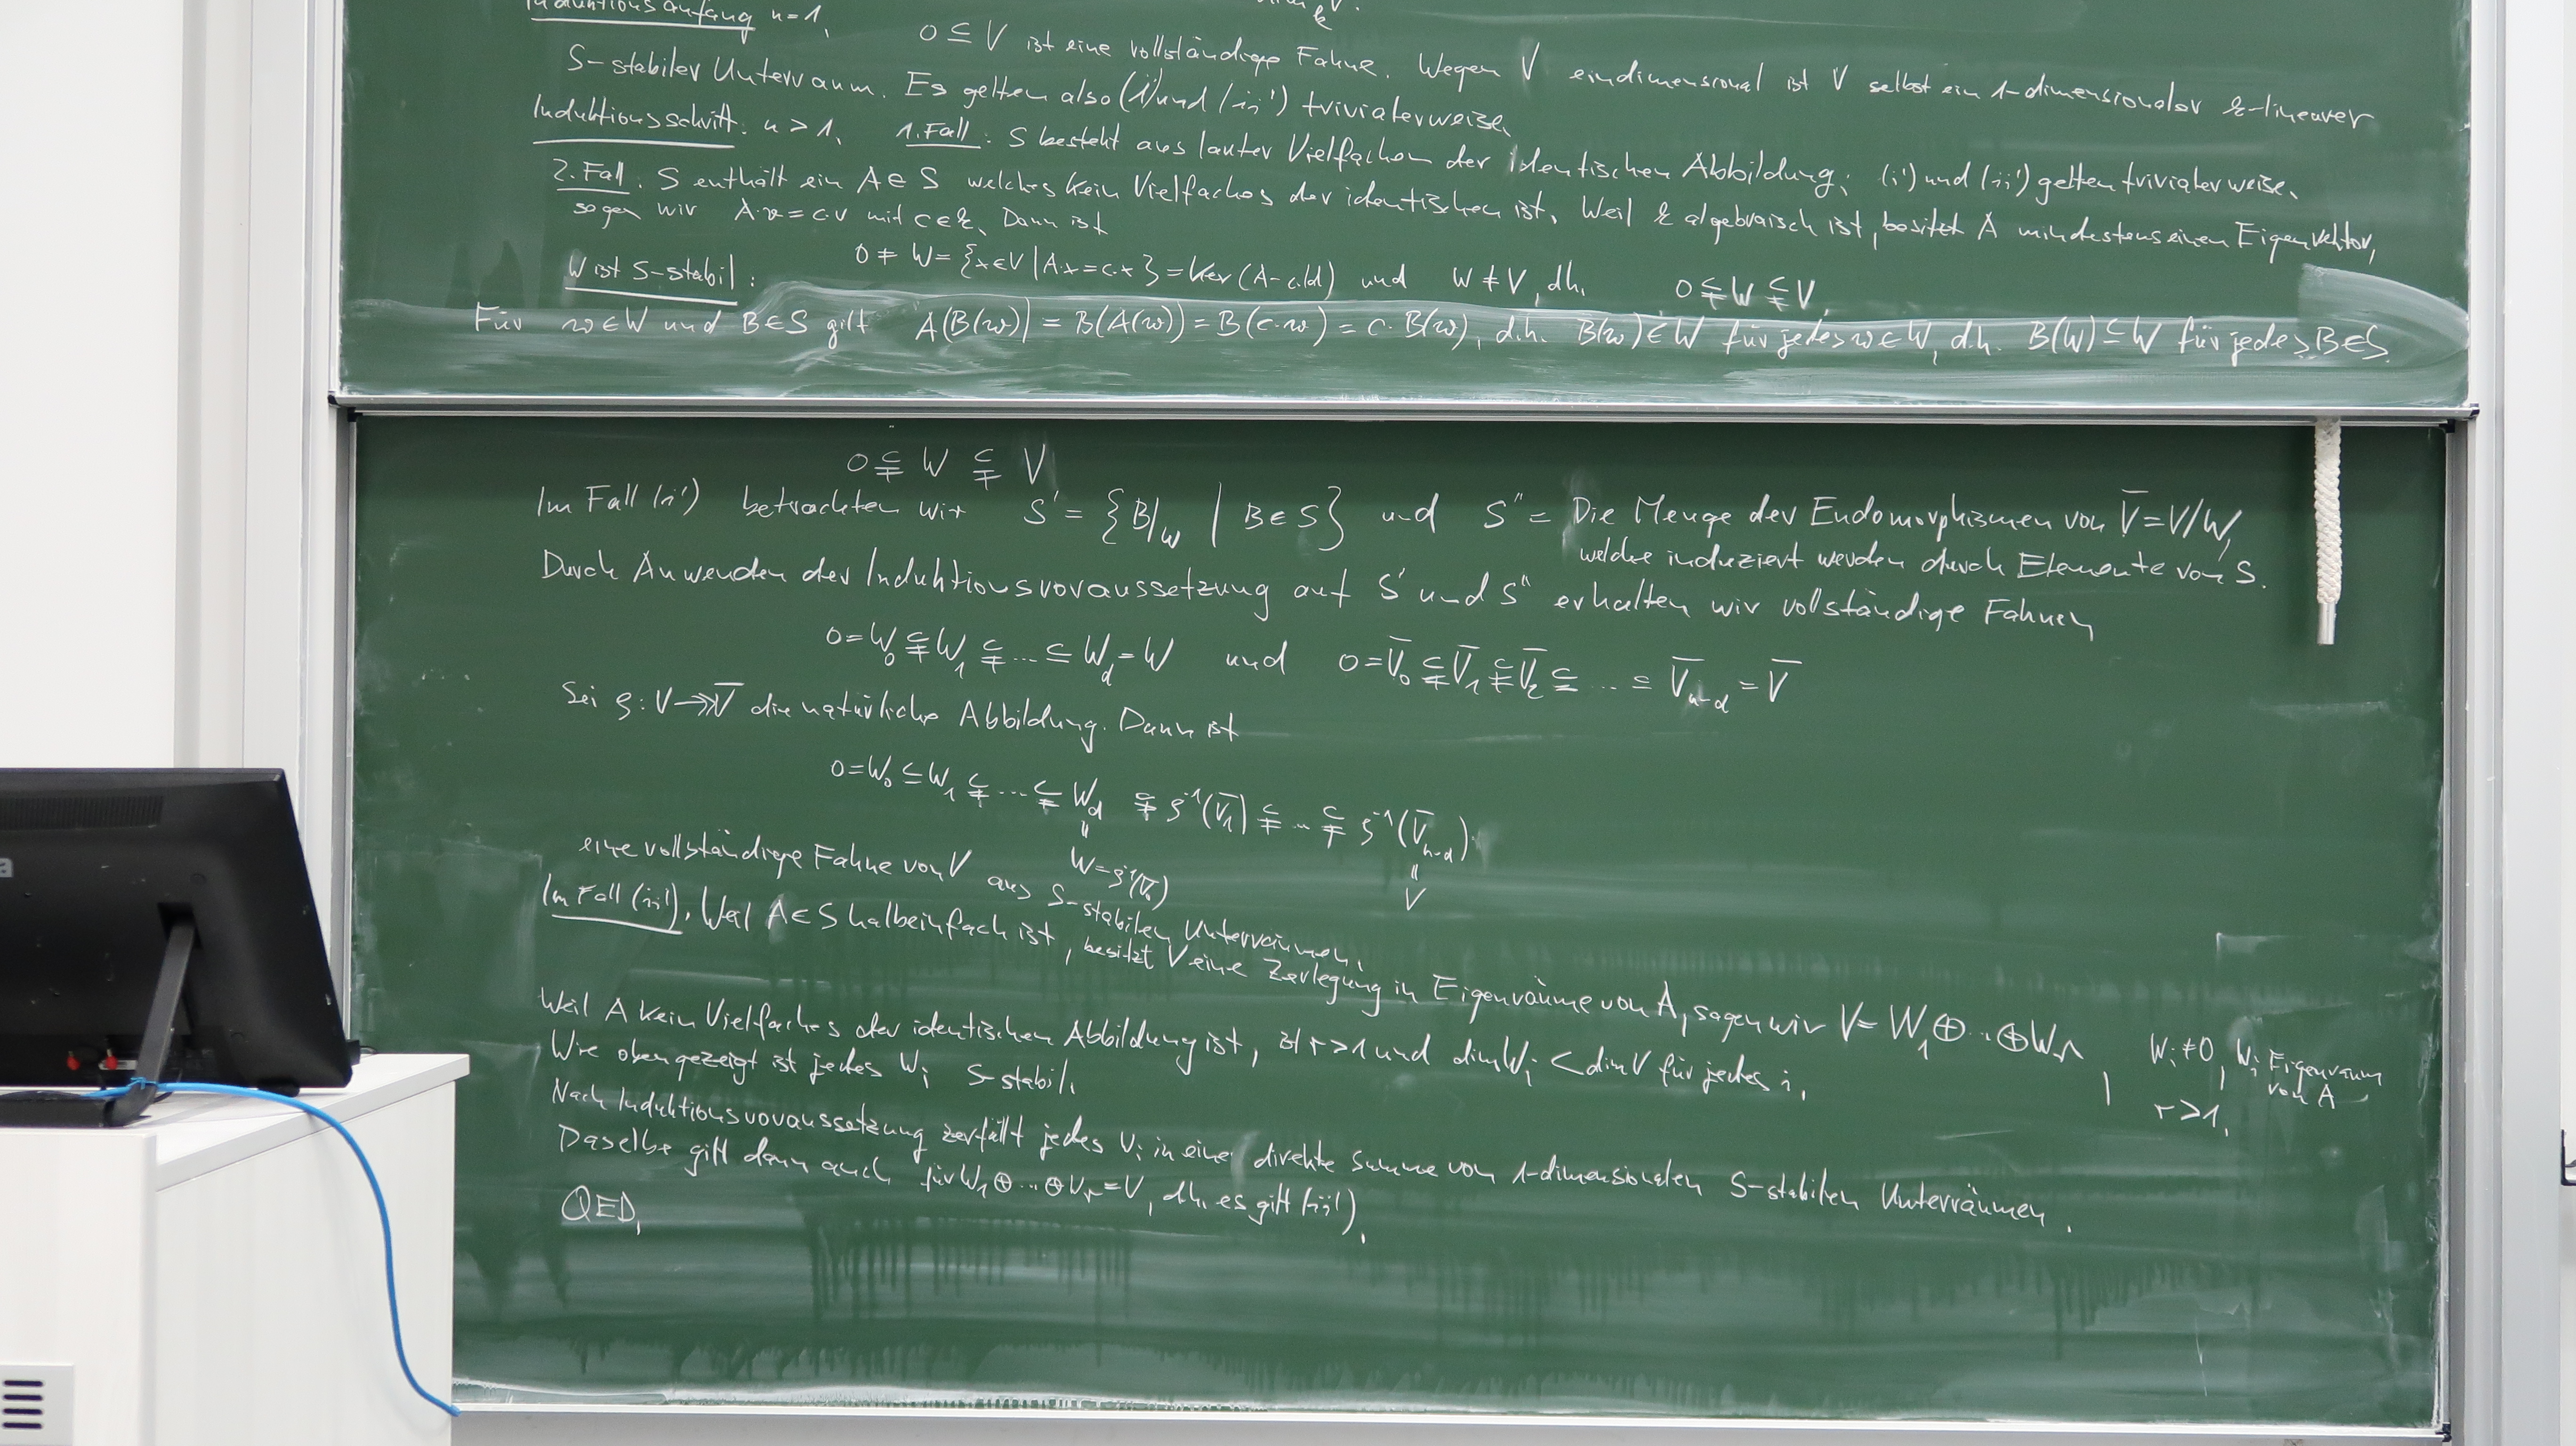 Induktionsanfang n=1,
0 ⊆ V ist eine vollständige Fahne. Wegen V eindimensional ist V selbst ein 1-dimensionaler k-linearer
S-stabiler Unterraum. Es gelten also (i') und (ii') trivialerweise.
Induktionsschritt: n > 1, 1. Fall: S besteht aus lauter Vielfachen der identischen Abbildung; (i') und (ii') gelten trivialerweise.
2. Fall: S enthält ein A ∈ S welches kein Vielfaches der identischen ist. Weil k algebraisch ist, besitzt A mindestens einen Eigenvektor,
sagen wir A·v = c·v mit c ∈ k. Dann ist
0 ≠ W = {x ∈ V | A·x = c·x} = Ker(A - c·Id) und W ≠ V, d.h. 0 ⊊ W ⊊ V,
W ist S-stabil:
Für w ∈ W und B ∈ S gilt A(B(w)) = B(A(w)) = B(c·w) = c·B(w), d.h. B(w) ∈ W für jedes w ∈ W, d.h. B(W) ⊆ W für jedes B ∈ S.
0 ⊊ W ⊊ V
Im Fall (i') betrachten wir S' = {B|_W | B ∈ S} und S'' = Die Menge der Endomorphismen von V̄ = V/W,
welche induziert werden durch Elemente von S.
Durch Anwenden der Induktionsvoraussetzung auf S' und S'' erhalten wir vollständige Fahnen
0 = W₀ ⊊ W₁ ⊊ ... ⊆ W_d = W und 0 = V̄₀ ⊊ V̄₁ ⊊ V̄₂ ⊆ ... ⊆ V̄_{n-d} = V̄
Sei ρ: V ↠ V̄ die natürliche Abbildung. Dann ist
0 = W₀ ⊆ W₁ ⊊ ... ⊊ W_d ⊊ ρ⁻¹(V̄₁) ⊊ ... ⊊ ρ⁻¹(V̄_{n-d}).
" "
W = ρ⁻¹(V̄₀) V
eine vollständige Fahne von V aus S-stabilen Unterräumen.
Im Fall (ii'). Weil A ∈ S halbeinfach ist, besitzt V eine Zerlegung in Eigenräume von A, sagen wir V = W₁ ⊕ ... ⊕ W_r, W_i ≠ 0, W_i Eigenraum von A
r > 1,
Weil A kein Vielfaches der identischen Abbildung ist, ist r > 1 und dim W_i < dim V für jedes i,
Wie oben gezeigt ist jedes W_i S-stabil.
Nach Induktionsvoraussetzung zerfällt jedes V_i in eine direkte Summe von 1-dimensionalen S-stabilen Unterräumen.
Daselbe gilt dann auch für W₁ ⊕ ... ⊕ V_r = V, d.h. es gilt (ii').
QED,